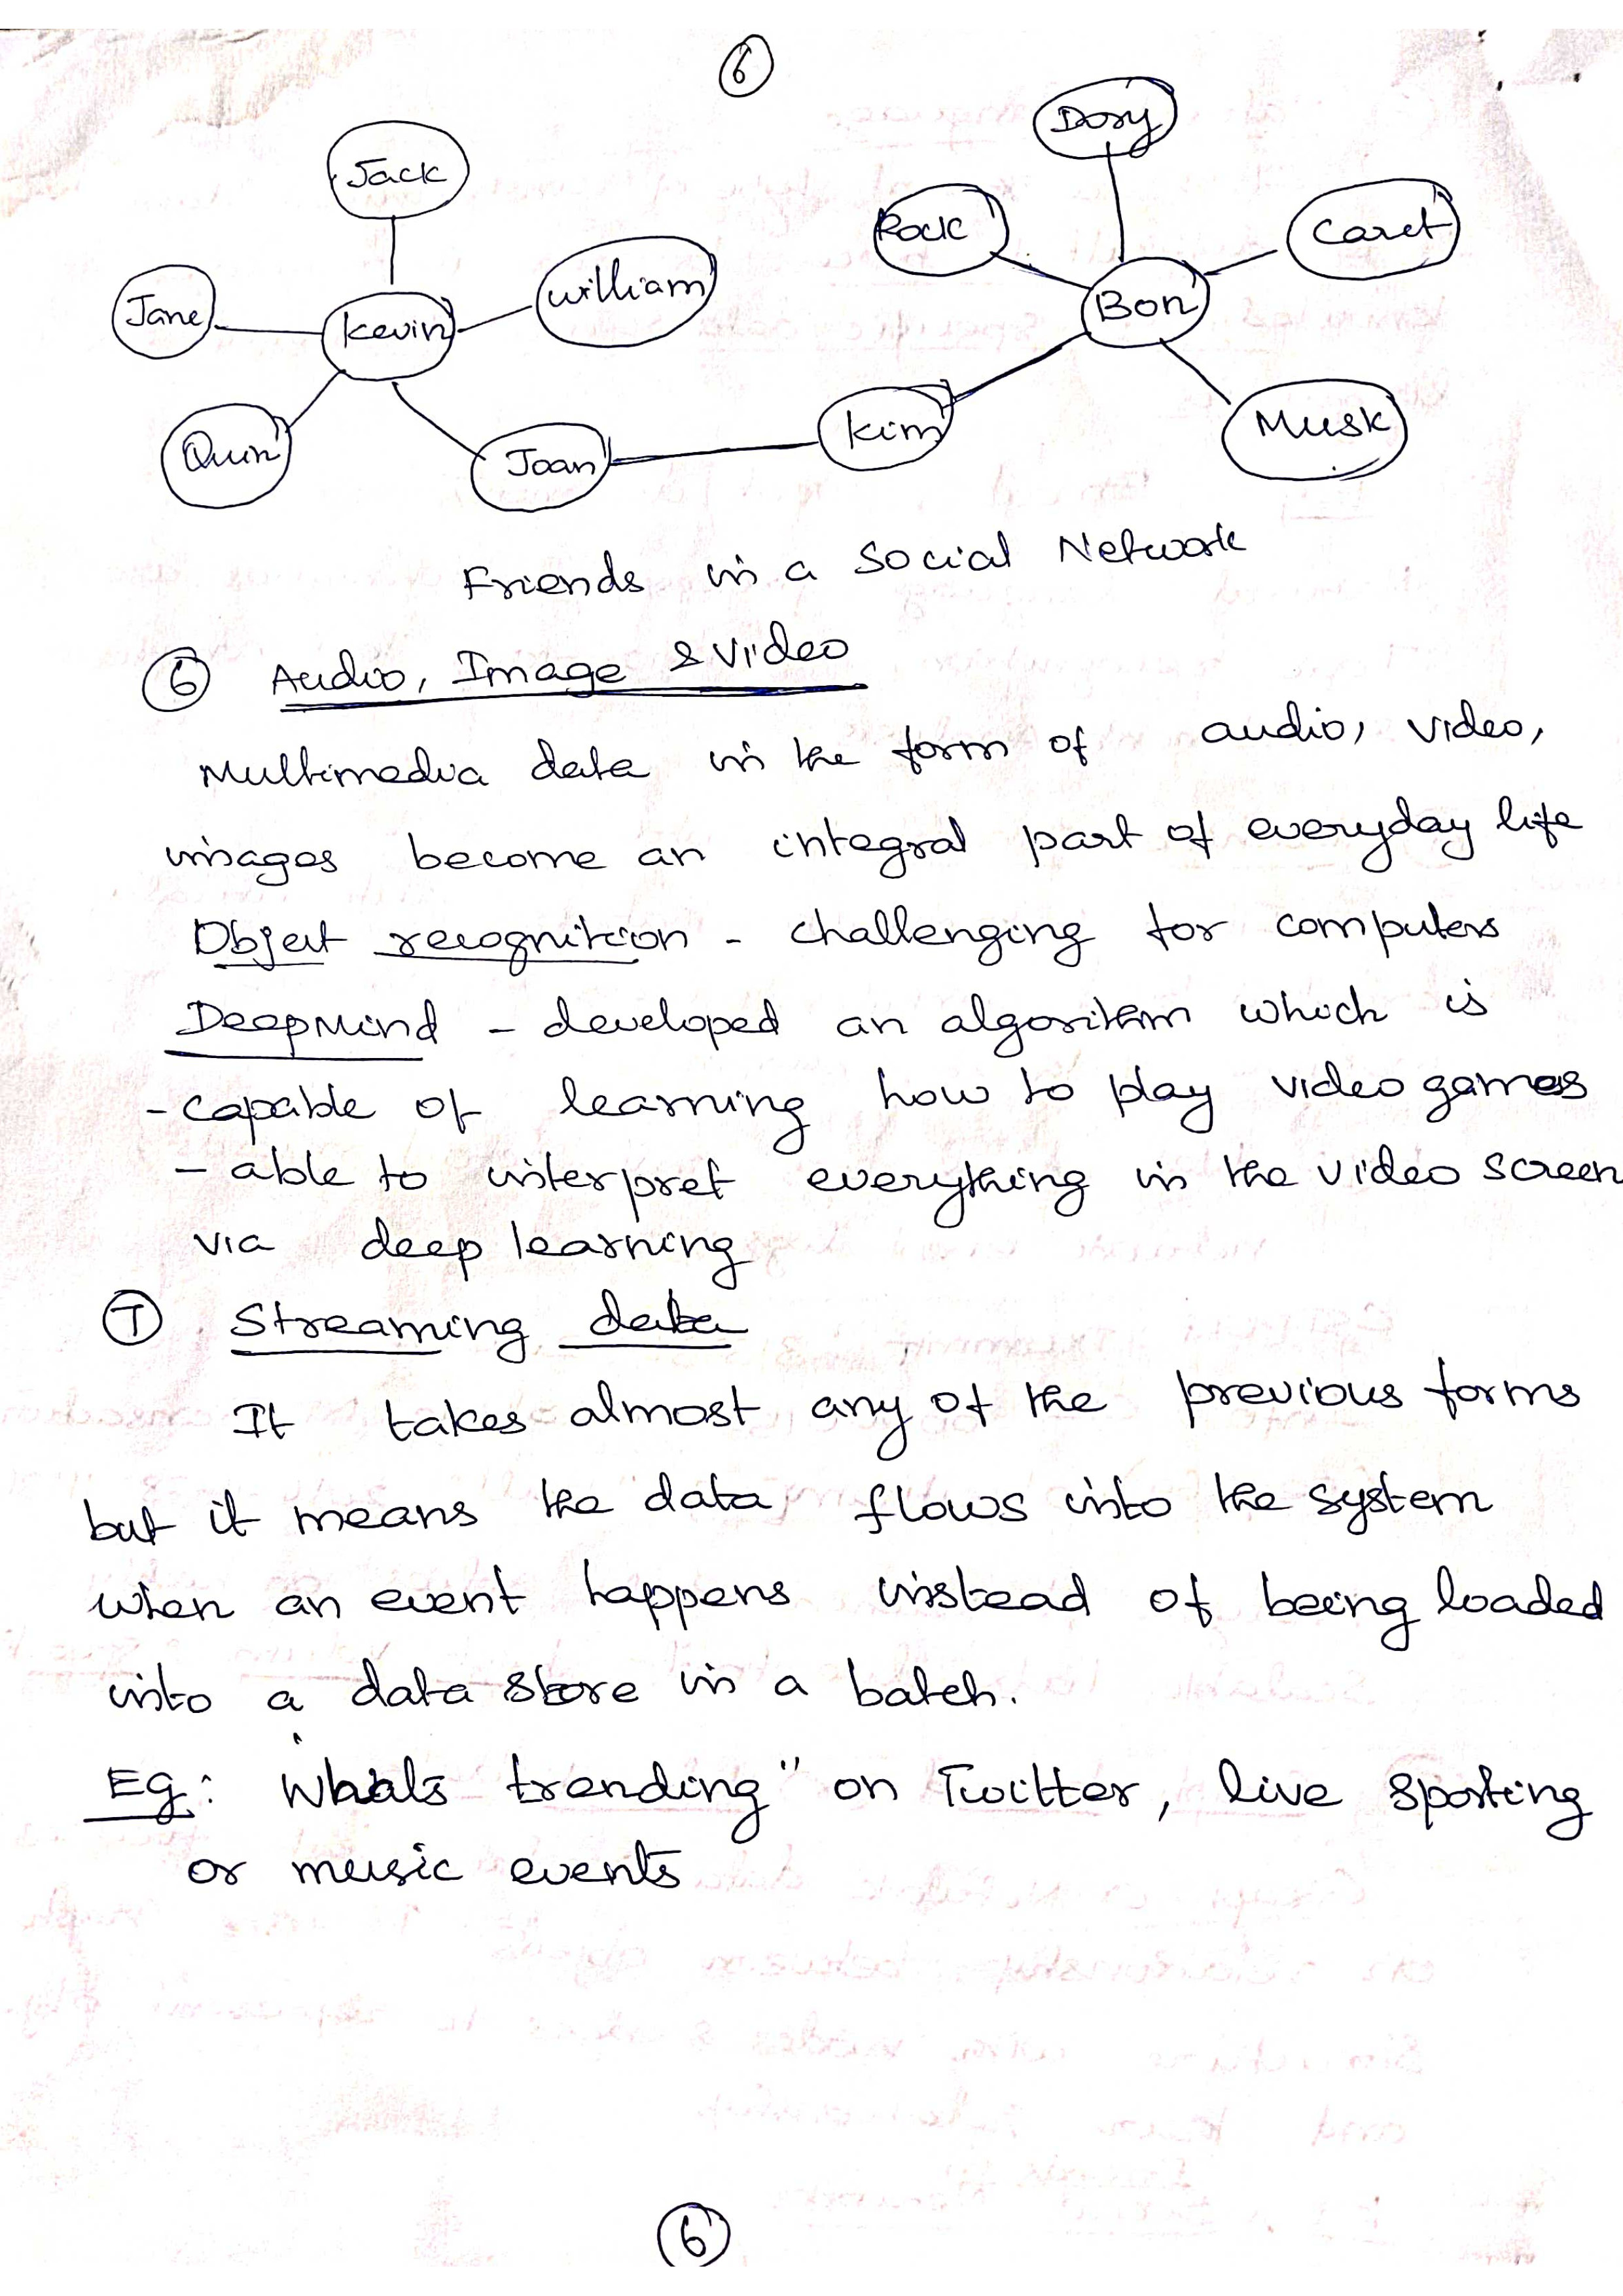 6
Dory
Jack
Rock
Caret
William
Jane
Kevin
Bon
Quin
Joan
Kim
Musk
Friends in a Social Network
6 Audio, Image & Video
Multimedia data in the form of audio, video,
images become an integral part of everyday life
Object recognition - challenging for computers
DeepMind - developed an algorithm which is
- capable of learning how to play video games
- able to interpret everything in the video screen
via deep learning
7 Streaming data
It takes almost any of the previous forms
but it means the data flows into the system
when an event happens instead of being loaded
into a data store in a batch.
Eg: Whats trending" on Twitter, live sporting
or music events
6